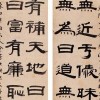 有補天地曰
曰富有廉恥
無為曰道無
無近于曖昧